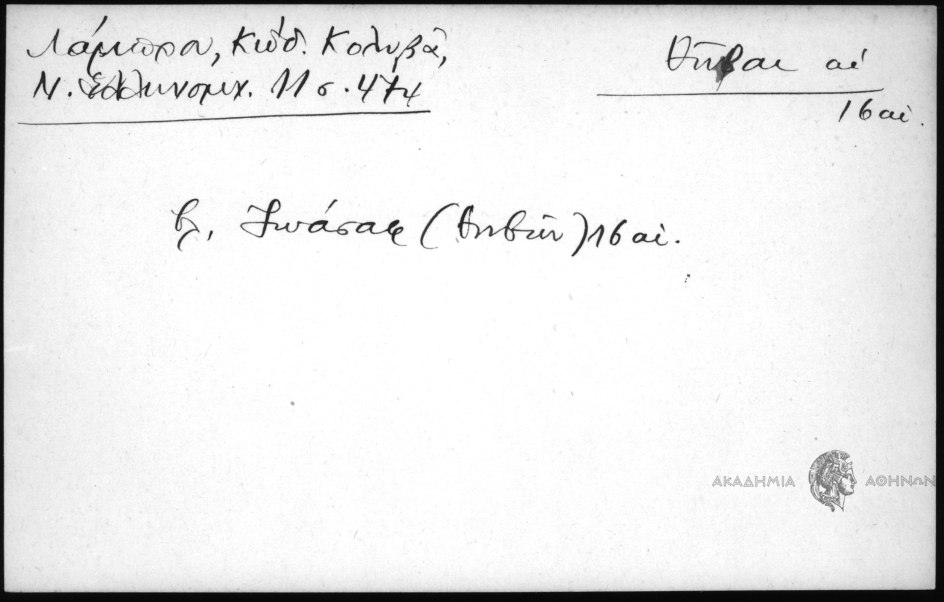 Λάμπρου, Κώδ. Κολυβᾶ,
Ν. Ἑλληνομν. 11 σ. 474
Θῆβαι αἱ
16 αἰ.
βλ, Ἰωάσαφ (Θηβῶν) 16 αἰ.
ΑΚΑΔΗΜΙΑ ΑΘΗΝΩΝ